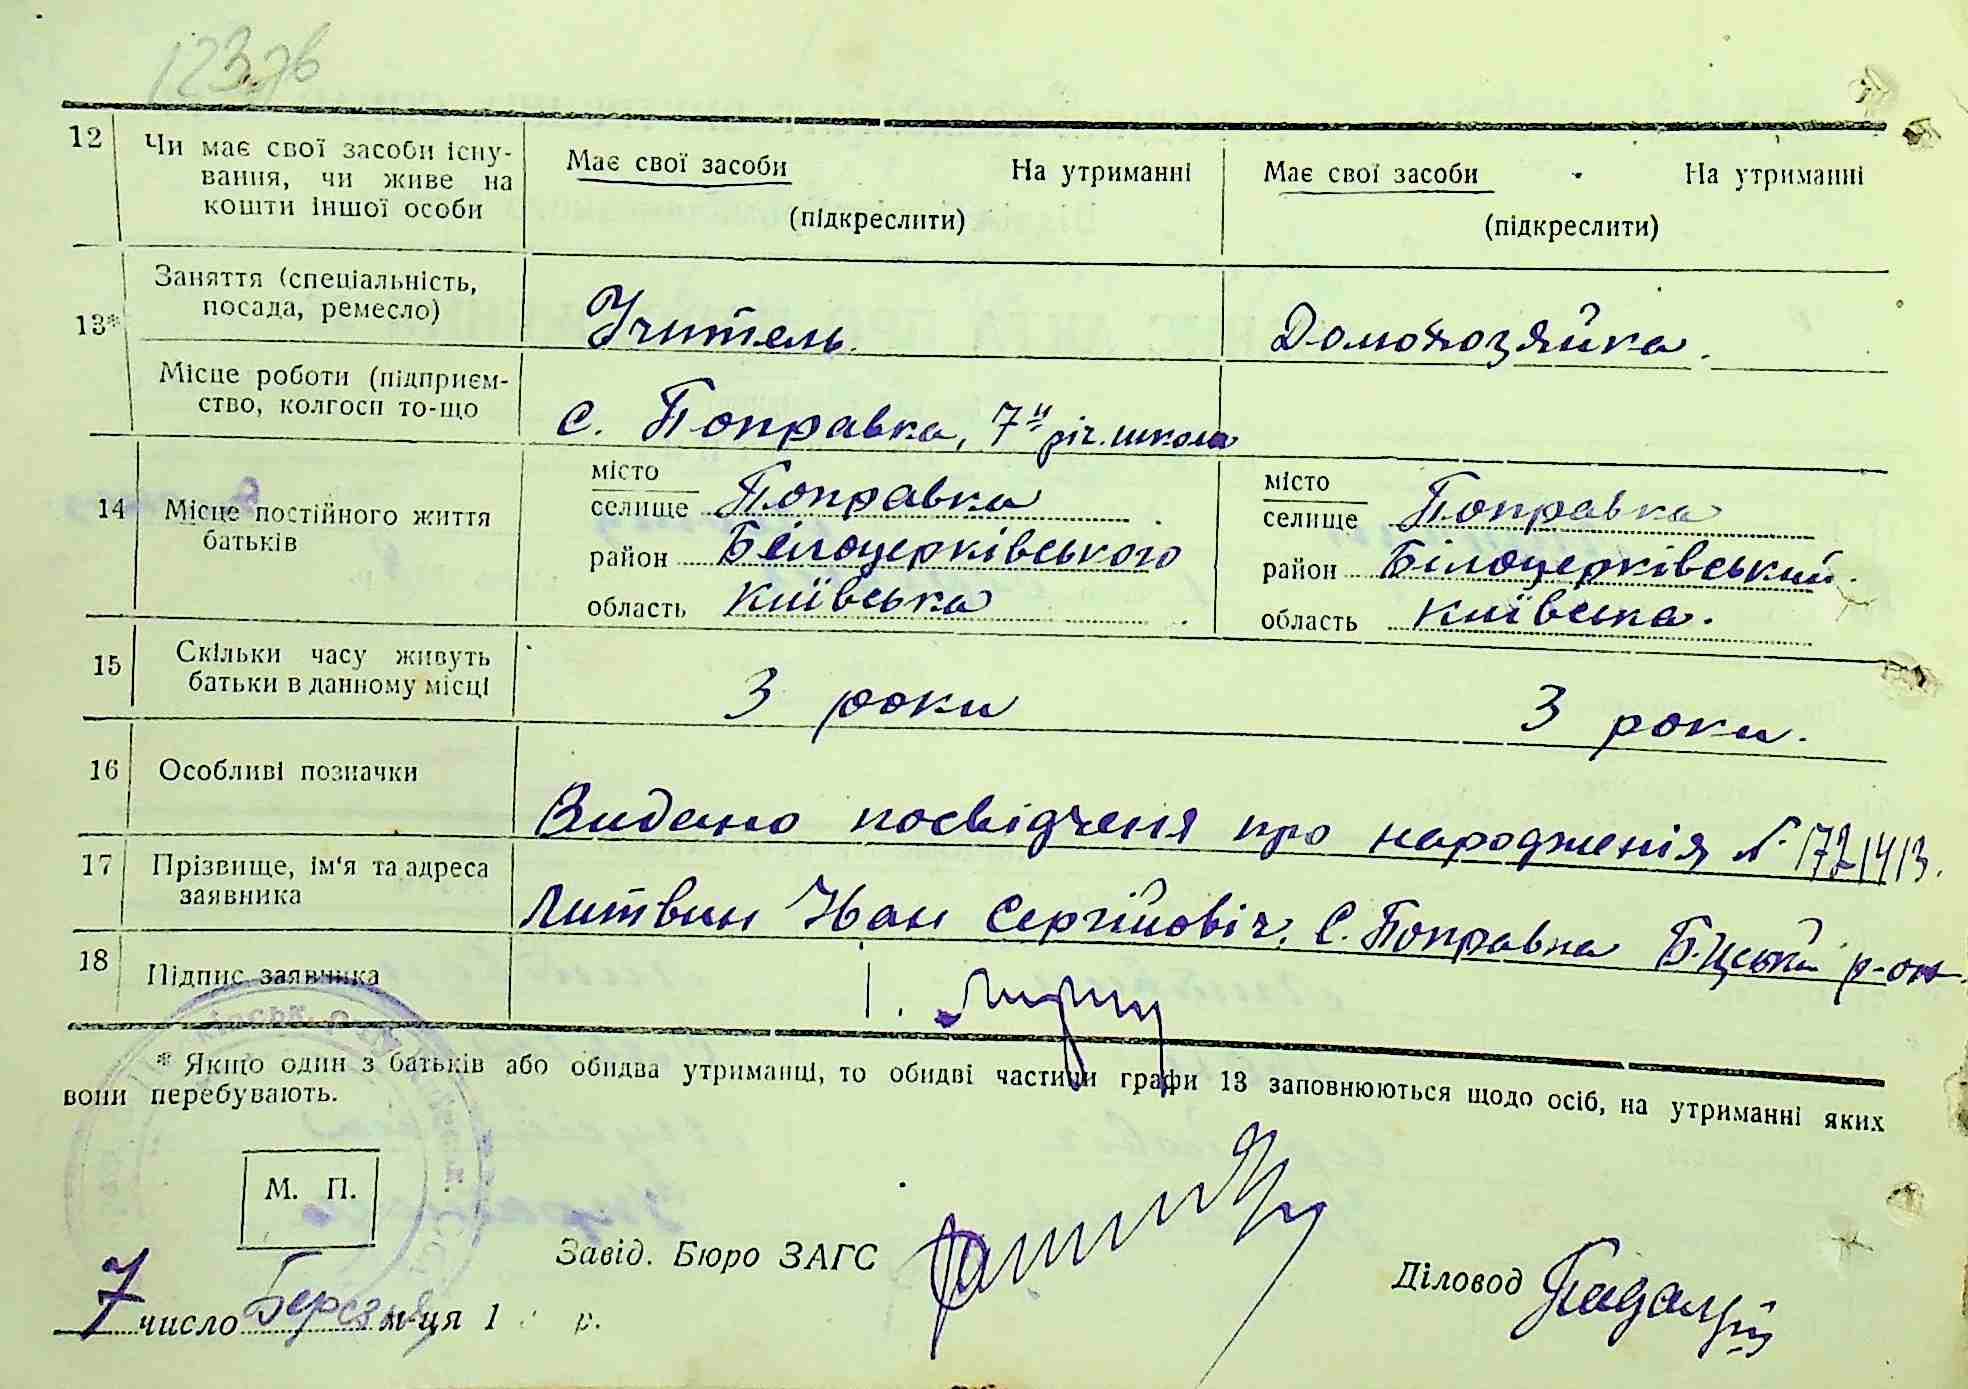 123
12
Чи має свої засоби існу-
вання, чи живе на
кошти іншої особи
Має свої засоби На утриманні
(підкреслити)
Має свої засоби На утриманні
(підкреслити)
13*
Заняття (спеціальність,
посада, ремесло)
Учитель.
Домохозяйка.
Місце роботи (підприєм-
ство, колгосп то-що
с. Поправка, 7й річ. школа
14
Місце постійного життя
батьків
місто
селище Поправка
район Білоцерківського
область Київська
місто
селище Поправка
район Білоцерківський.
область Київська.
15
Скільки часу живуть
батьки в данному місці
3 роки
3 роки.
16
Особливі позначки
Видано посвідченя про народженія №
17
Прізвище, ім'я та адреса
заявника
Литвин Іван Сергійовіч. С. Поправка Б.Цський р-он.
18
Підпис заявника
* Якщо один з батьків або обидва утриманці, то обидві частини графи 13 заповнюються щодо осіб, на утриманні яких
вони перебувають.
М. П.
Завід. Бюро ЗАГС
Діловод
7 число Березня м-ця 1 р.